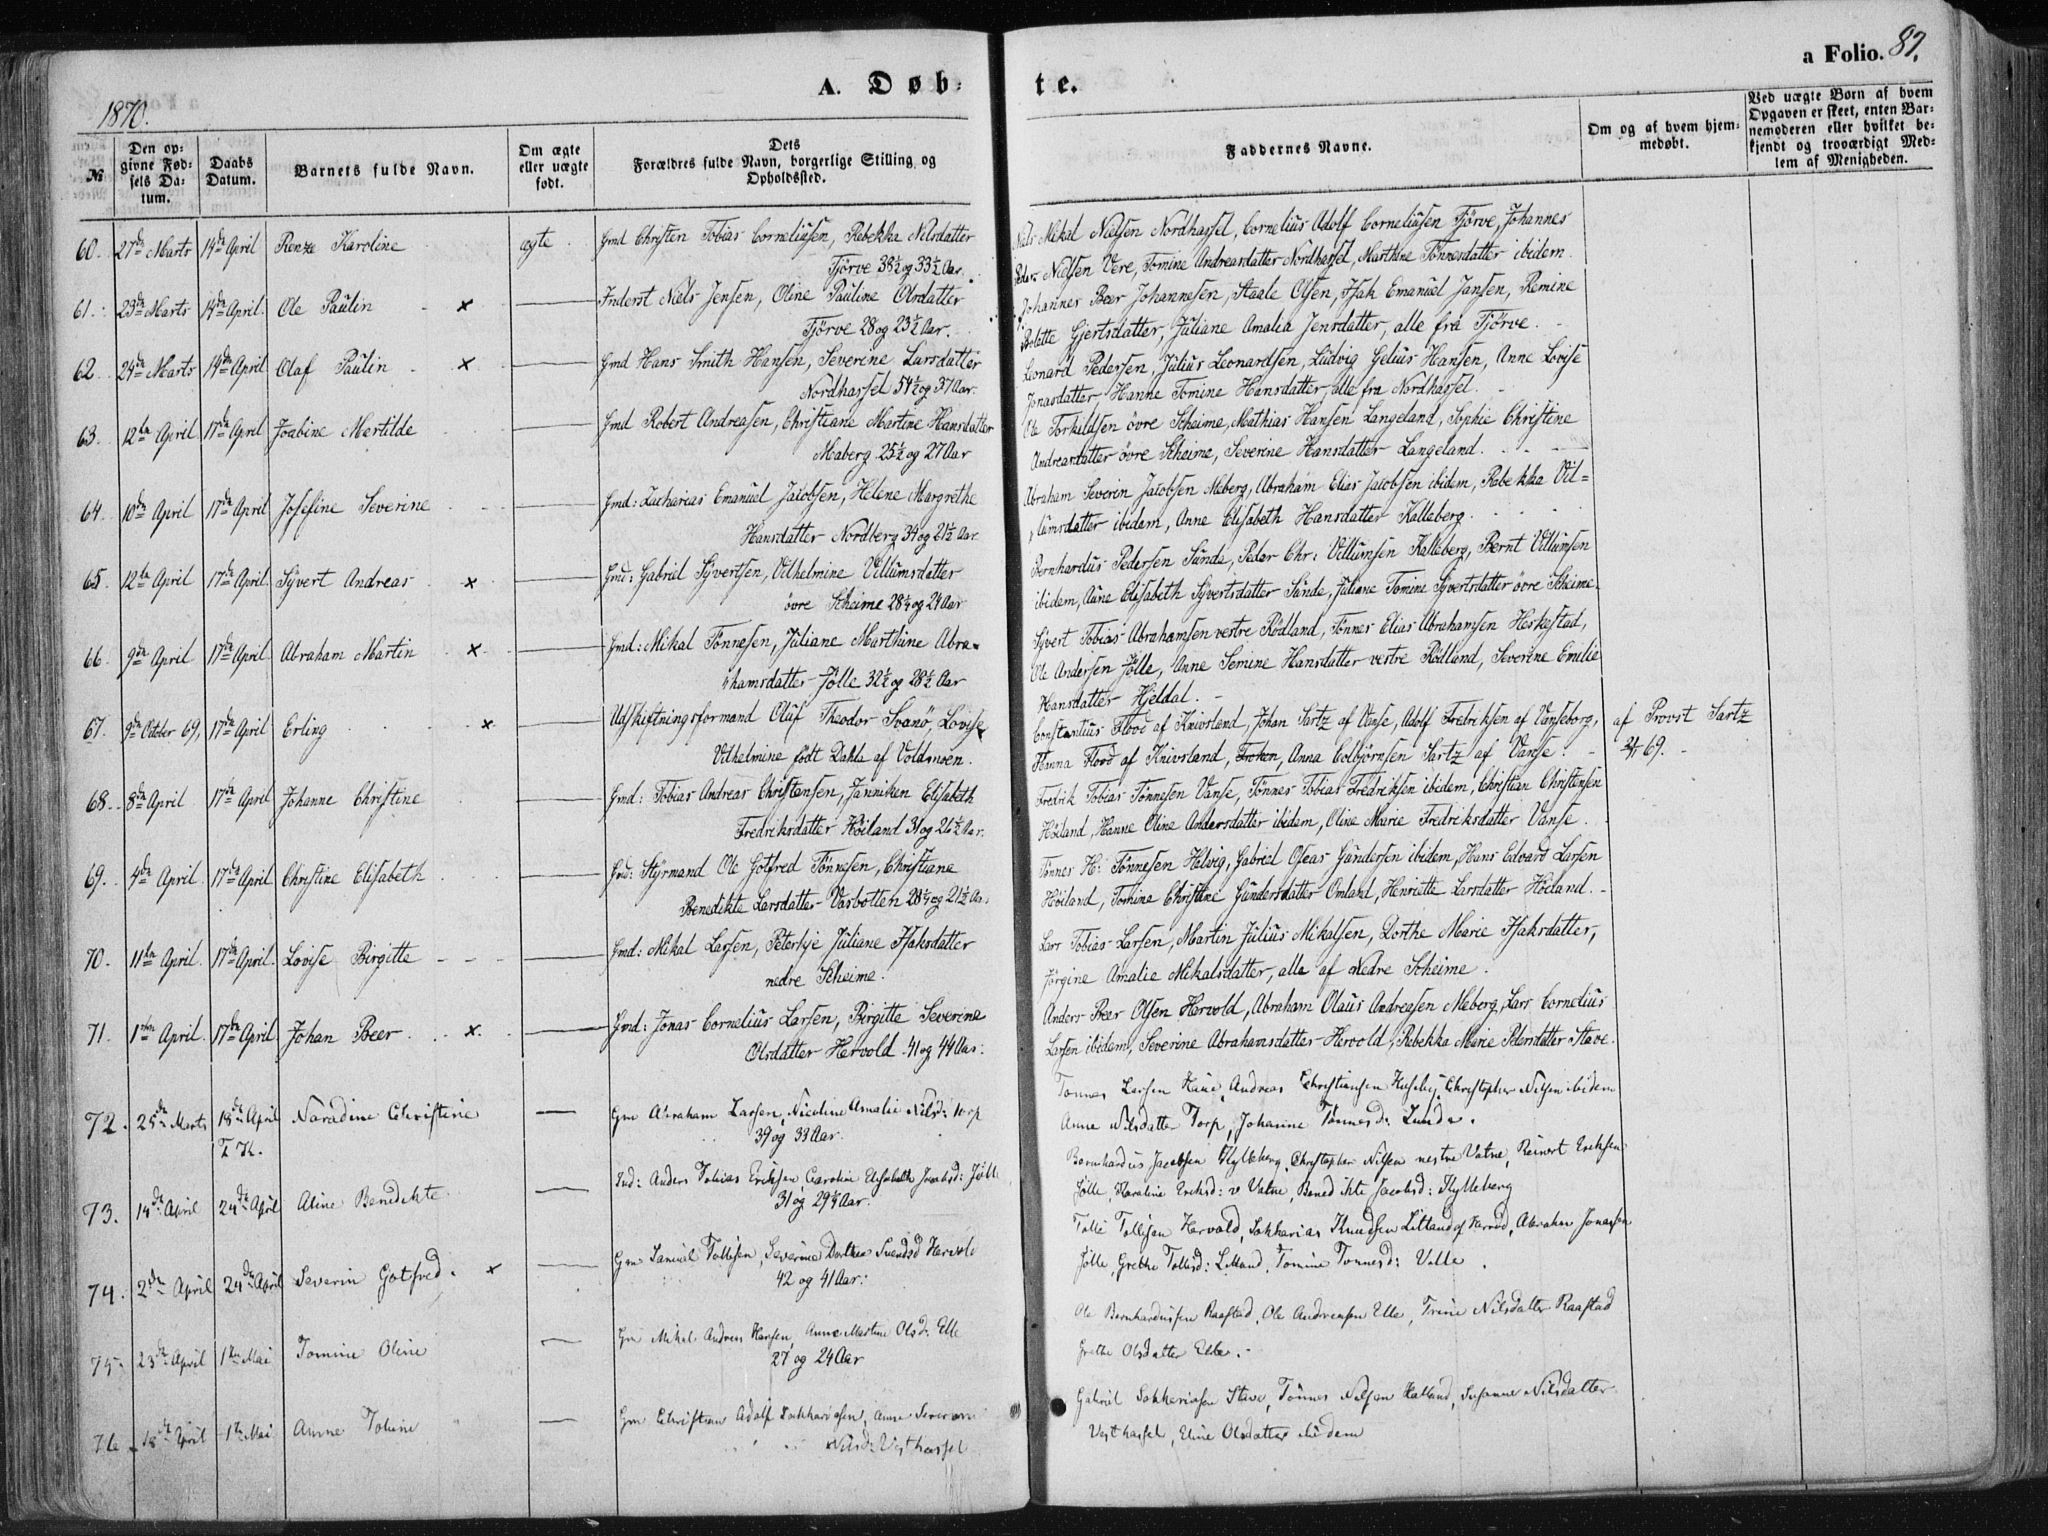 1870.
A. Døb-
te.
a Folio. 87.
№
Den opgivne Fødsels Datum.
Daabs Datum.
Barnets fulde Navn.
Om ægte eller uægte født.
Dets Forældres fulde Navn, borgerlige Stilling og Opholdssted.
Faddernes Navne.
Om og af hvem hjemmedøbt.
Ved uægte Børn af hvem Opgaven er skeet, enten Barnemøderen eller hvilket bekjendt og troværdigt Medlem af Menigheden.
60. 27de Marts 14de April Renze Karoline ægte Gmd Christen Tobias Corneliusen, Rebekka Nilsdatter
Tjörve 38½ og 33½ Aar.
Niels Mekal Nielsen Nordhassel, Cornelius Adolf Corneliusen Tjörve, Johannes
Peder Nielsen Vere, Tomine Andreasdatter Nordhassel, Marthine Tönnesdatter ibidem.
61. 23de Marts 14de April. Ole Paulin × Inderst Niels Jensen, Oline Pauline Olsdatter
Tjörve 28 og 23½ Aar.
Johannes Beer Johannesen, Staale Olsen, Isak Emanuel Jansen, Remine
Bolette Gjertsdatter, Juliane Amalia Jensdatter, alle fra Tjörve.
62. 24de Marts 14de April Olaf Paulin × Gmd Hans Smith Hansen, Severine Larsdatter
Nordhassel 54½ og 37 Aar.
Leonard Pedersen, Julius Leonardsen, Ludvig Gelius Hansen, Anne Lovise
Jonasdatter, Hanne Tomine Hansdatter, alle fra Nordhassel.
63. 12te April 17de April Joabine Mertilde Gmd Robert Andreasen, Christiane Martine Hansdatter
Maberg 25½ og 27 Aar
Ole Torkildsen övre Skeime, Mathias Hansen Langeland, Sophie Christine
Andreasdatter övre Skeime, Severine Hansdatter Langeland.
64. 10de April 17de April Josefine Severine Gmd: Zacharias Emanuel Jacobsen, Helene Margrethe
Hansdatter Nordberg 34 og 21½ Aar
Abraham Severin Jacobsen Meberg, Abraham Elias Jacobsen ibidem, Rebekka Vil=
lumsdatter ibidem, Anne Elisabeth Hansdatter Kalleberg.
65. 12te April 17de April. Syvert Andreas × Gmd: Gabriel Syvertsen, Vilhelmine Villumsdatter
övre Skeime 28¼ og 24 Aar
Bernhardus Pedersen Sunde, Peder Chr: Villumsen Kalleberg, Bernt Villumsen
ibidem, Anne Elisabeth Syvertsdatter Sunde, Juliane Tomine Syvertsdatter övre Skeime.
66. 9de April 17de April Abraham Martin × Gmd: Mikal Tönnesen, Juliane Marthine Abra=
hamsdatter Jölle 32½ og 28½ Aar
Syvert Tobias Abrahamsen vestre Rödland, Tönnes Elias Abrahamsen Heskestad,
Ole Andersen Jölle, Anne Semine Hansdatter vestre Rödland, Severine Emilie
Hansdatter Hjeldal.
67. 9de October 69, 17de April Erling × Udskiftningsformand Oluf Theodor Svanö, Lovise
Vilhelmine född Dahla af Voldmoen.
Constantius Flood af Knivsland, Johan Sartz af Vanse, Adolf Fredriksen af Vanseborg,
Hanna Flood af Knivsland, Froken, Anna Colbjörnsen Sartz af Vanse.
af Provst Sartz
69.
68. 8de April 17de April Johanne Christine Gmd: Tobias Andreas Christensen, Janniken Elisabeth
Fredriksdatter Höiland 31 og 26½ Aar.
Fredrik Tobias Tönnesen Vanse, Tönnes Tobias Fredriksen ibidem, Christian Christensen
Höiland, Hanne Oline Andersdatter ibidem, Oline Marie Fredriksdatter Vanse.
69. 4de April 17de April Christine Elisabeth Gmd: Styrmand Ole Gotfred Tönnesen, Christiane
Benedikte Larsdatter Vasbotten 28¼ og 21½ Aar.
Tönnes H: Tönnesen Helvig, Gabriel Oseas Gundersen ibidem, Hans Edvard Larsen
Höiland, Tomine Christine Gundersdatter Omland, Henriette Larsdatter Höiland.
70. 11te April. 17de April. Lovise Birgitte Gmd: Mikal Larsen, Petersje Juliane Isaksdatter
nedre Skeime.
Lars Tobias Larsen, Martin Julius Mikalsen, Dorthe Marie Isaksdatter,
Jörgine Amalie Mikalsdatter, alle af Nedre Skeime.
71. 1ste April 17de April. Johan Beer × Gmd: Jonas Cornelius Larsen, Birgitte Severine
Olsdatter Hervold 41 og 44 Aar:
Anders Beer Olsen Hervold, Abraham Olaus Andreasen Meberg, Lars Cornelius
Larsen ibidem, Severine Abrahamsdatter Hervold, Rebekka Marie Pedersdatter Stave.
72. 25de Marts 18de April Naradine Christine Gm Abraham Larsen, Nicoline Amalie Nilsd: Torp
39 og 33 Aar.
Tonnes Larsen Haue, Andreas Christiansen Huseby, Christopher Nilsen ibidem
Anne Nilsdatter Torp, Johanne Tönnesd: Lunde.
73. 14de April 24de April Aline Benedikte Ind: Anders Tobias Eriksen Caroline Elisabeth Jacobsd: Jölle
31 og 29¼ Aar.
Bernhardus Jacobsen Hylleberg, Christopher Nilsen vestre Vatne, Reinert Eriksen
Jölle, Karoline Eriksd: v Vatne, Benedikte Jacobsd: Hylleberg
74. 2de April 24de April Severin Gotfred. × Gm Samuel Tollisen, Severine Dorthea Svendsd Hervold
42 og 41 Aar:
Tolle Tollisen Hervold, Sakkarias Knudsen Litland af Herred, Abraham Jonassen
Jölle, Grethe Tollisd: Litland, Tomine Tönnesd: Velle.
75. 23de April 1ste Mai Tomine Oline Gm Mikal Andreas Hansen, Anne Martine Olsd: Elle
27 og 24 Aar
Ole Bernhardussen Raastad, Ole Andreasen Elle, Trine Nilsdatter Raastad
Grethe Olsdatter Elle.
76. 18de April 1ste Mai Anne Tobine Gm Christian Adolf Zachariasen, Anne Severine
Nilsd: Vesthassel
Gabriel Sakkeriasen Stave, Tönnes Nilsen Kalland, Susanne Nilsdatter
Vesthassel, Eline Olsdatter ibidem